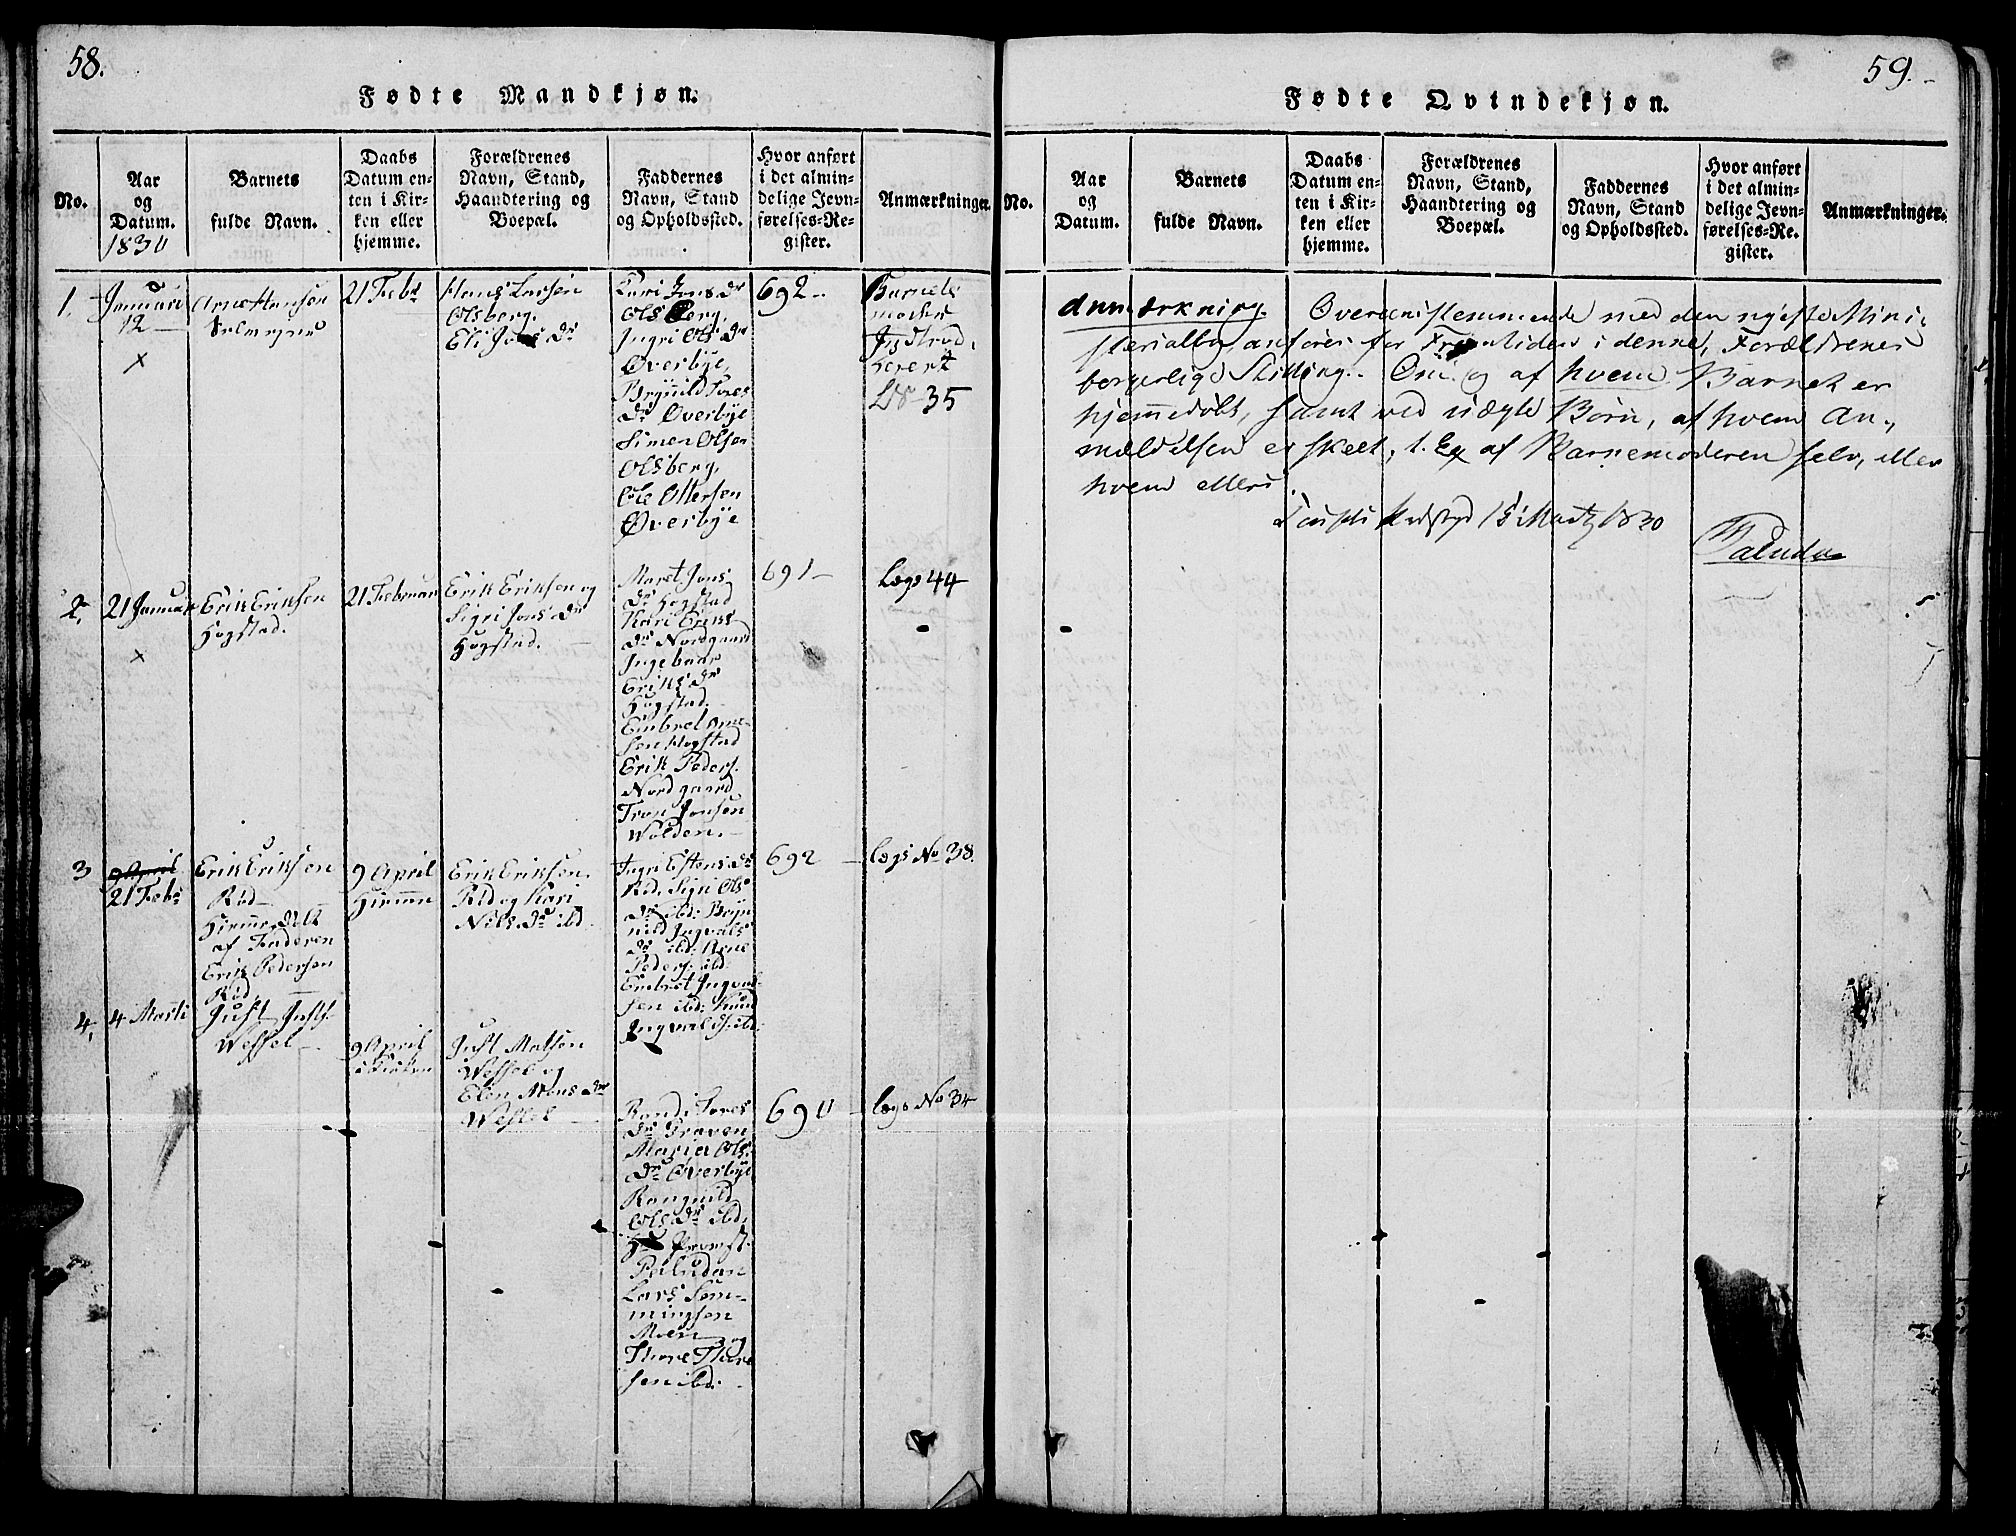 58.
Fødte Mandkjøn.
No.
Aar
og
Datum.
1830
Barnets
fulde Navn.
Daabs
Datum en-
ten i Kir-
ken eller
hjemme.
Forældrenes
Navn, Stand,
Haandtering og
Boepæl.
Faddernes
Navn, Stand
og Opholdssted.
Hvor anført
i det almin-
delige Jevn-
førelses-Re-
gister.
Anmærkninger.
1.
Januari
12
x
Arne Hansen
21 Febr
Hans Larsen
Olsberg.
Eli Jons Dr
Kari Jons Dr
Olsberg,
Ingri Ols Dr
Øverbye,
Brynild Tores
Dr Øverbye
Simen Olsen
Olsberg,
Ole Ottersen
Øverbye
692
Barnets
moder
35
2.
21 Januar
x
Erik Eriksen
Høgstad.
21 Februar
Erik Eriksen og
Sigri Jons Dr
Høgstad.
Maret Jons
Dr Høgstad
Kari Eriks
Dr Nordgaard
Ingebaar
Eriks Dr
Høgstad.
Embret Arne-
sen Høgstad
Erik Peders.
Nordgaard
Tron Jonsen
Wolden.
691
Lægs 44
3
9 April
21 Febr
Erik Eriksen
Rød
Hjemmedøbt
af Faderen
Erik Pedersen
Rød
9 April
Hjemme
Erik Eriksen
Rød og Kari
Nils Dr ibd.
Ingri Estens Dr
Rød, Sigri Ols
Dr ibd: Bryn
nild Ingvals
Dr ibd: Arne
Peders. ibd:
Embret Ingval-
sen ibd: Knud
Ingvals. ibd:
692
lægs No 38.
4.
4 Marti
Just Justs.
Wessel
9 April
i Kirken
Just Matsen
Wessel og
Elen Mons Dr
Wessel
Randi Tores
Dr Graven
Maria Ols
Dr Øverbye
Rangnild
Ols Dr ibd.
Hr Provst
Paludan
Lars Sem-
mingsen
Moen og
Thore Thore
sen ibd.
690
lægs No 34
59.
Fødte Qvindekjøn.
No.
Aar
og
Datum.
Barnets
fulde Navn.
Daabs
Datum en-
ten i Kir-
ken eller
hjemme.
Forældrenes
Navn, Stand,
Haandtering og
Boepæl.
Faddernes
Navn, Stand
og Opholdssted.
Hvor anført
i det almin-
delige Jevn-
førelses-Re-
gister.
Anmærkninger.
Anmærkning. Overeenstemmende med den nyeste Mini-
sterialbog, anføres for Fremtiden i denne, Forældrenes
borgerlige Stilling. Om og af hvem Barnet er
hjemmedøbt, samt ved uægte Børn, af hvem An-
mældelsen er skeet, t. Ex af Barnemoderen selv, eller
hvem ellers.
15 Martz 1830
Paludan